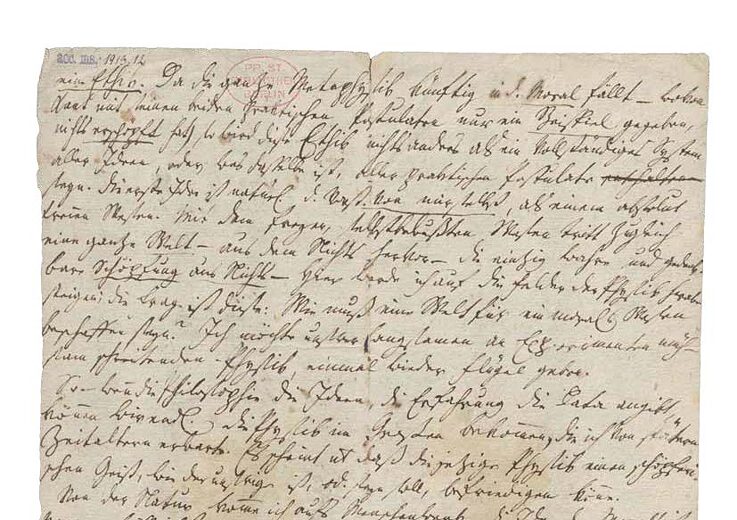 acc. ms. 1913.12
PR. ST.
BIBLIOTHEK
BERLIN
eine Ethik. Da die ganze Metaphysik künftig in d. Moral fällt – wovon
Kant mit seinen beiden praktischen Postulaten nur ein Beispiel gegeben,
nichts erschöpft hat) so wird diese Ethik nichts anders als ein vollständiges System
aller Ideen, oder, was dasselbe ist, aller praktischen Postulate enthalten
seyn. die erste Idee ist natürl. d. Vorst. von mir selbst, als einem absolut
freien Wesen. Mit dem freyen, selbstbewußten Wesen tritt zugleich
eine ganze Welt – aus dem Nichts hervor – die einzig wahre und gedenk-
bare Schöpfung aus Nichts – Hier werde ich auf die Felder der Physik herab-
steigen; die Frage ist diese: Wie muß eine Welt für ein moralisches Wesen
beschaffen seyn? Ich möchte unsrer langsamen an Experimenten müh-
sam schreitenden – Physik, einmal wieder Flügel geben.
So – wenn die Philosophie die Ideen, die Erfahrung die Data angibt,
können wir endl. die Physik im Großen bekommen, die ich von spätern
Zeitaltern erwarte. Es scheint nt daß die jezige Physik einen schöpferi-
schen Geist, wie der unsrige ist, od. seyn soll, befriedigen könne.
Von der Natur komme ich aufs Menschenwerk. die Idee der